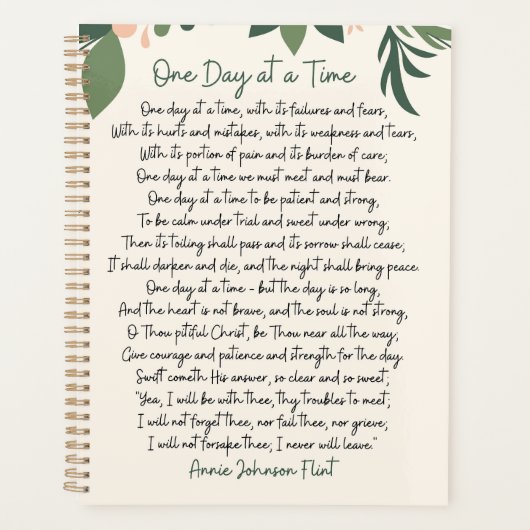 One Day at a Time
One day at a time, with its failures and fears,
With its hurts and mistakes, with its weakness and tears,
With its portion of pain and its burden of care;
One day at a time we must meet and must bear.
One day at a time to be patient and strong,
To be calm under trial and sweet under wrong;
Then its toiling shall pass and its sorrow shall cease;
It shall darken and die, and the night shall bring peace.
One day at a time - but the day is so long,
And the heart is not brave, and the soul is not strong,
O Thou pitiful Christ, be Thou near all the way;
Give courage and patience and strength for the day.
Swift cometh His answer, so clear and so sweet;
"Yea, I will be with thee, thy troubles to meet;
I will not forget thee, nor fail thee, nor grieve;
I will not forsake thee; I never will leave."
Annie Johnson Flint